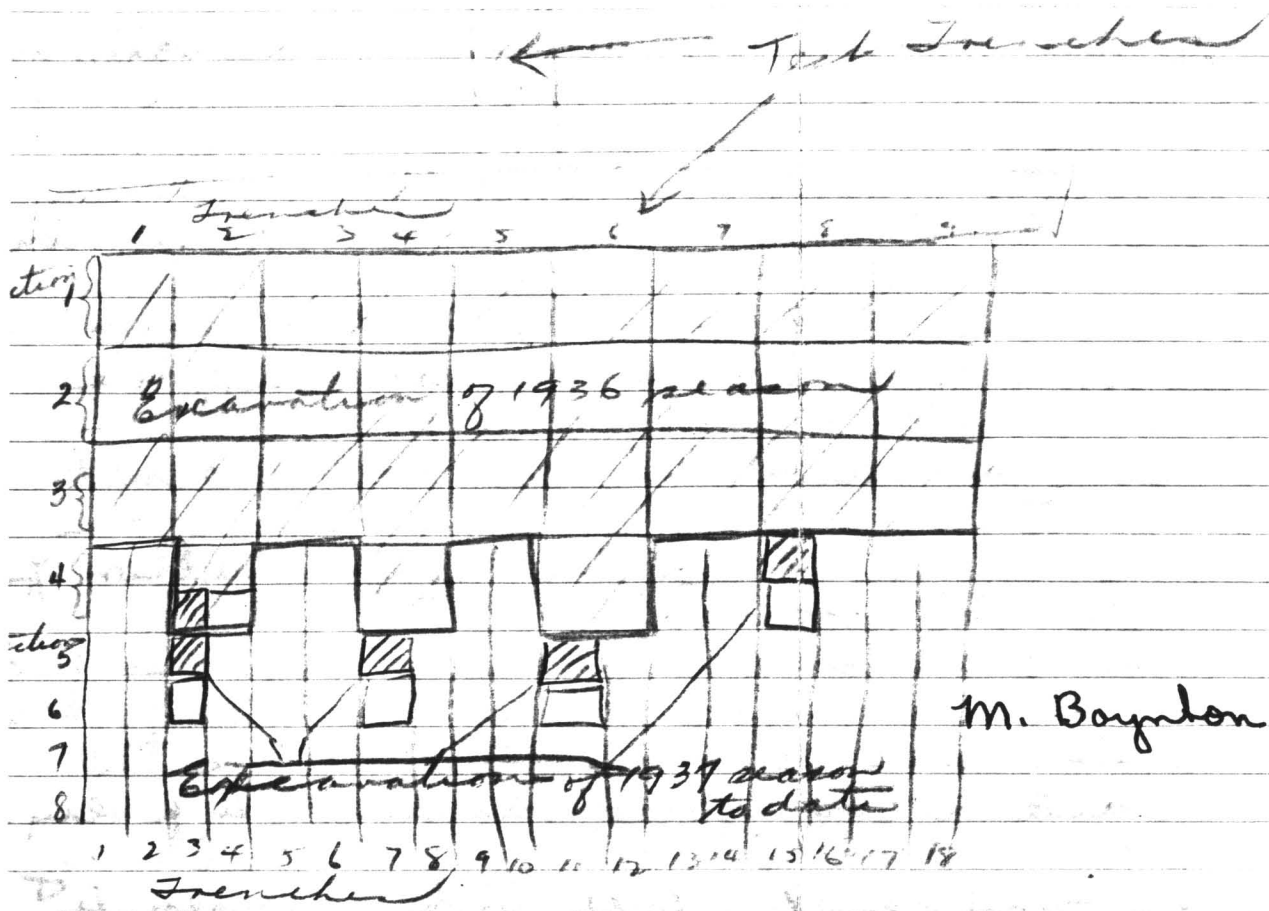 Test Trenches
Trenches
1 2 3 4 5 6 7 8 9
ction 1
2 Excavation of 1936 season
3
4
ction 5
6
M. Boynton
7
Excavation of 1937 season
8 to date
1 2 3 4 5 6 7 8 9 10 11 12 13 14 15 16 17 18
Trenches